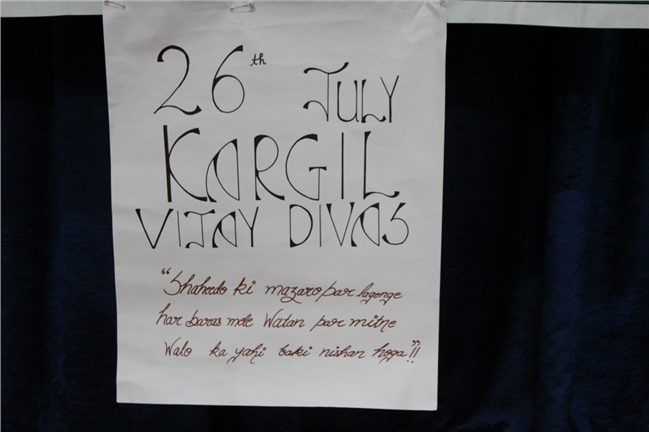 26th July
KARGIL
VIJAY DIVAS
"Shaheedo ki mazaro par lagenge
har baras mele Watan par mitne
Walo ka yahi baki nishan hoga"!!